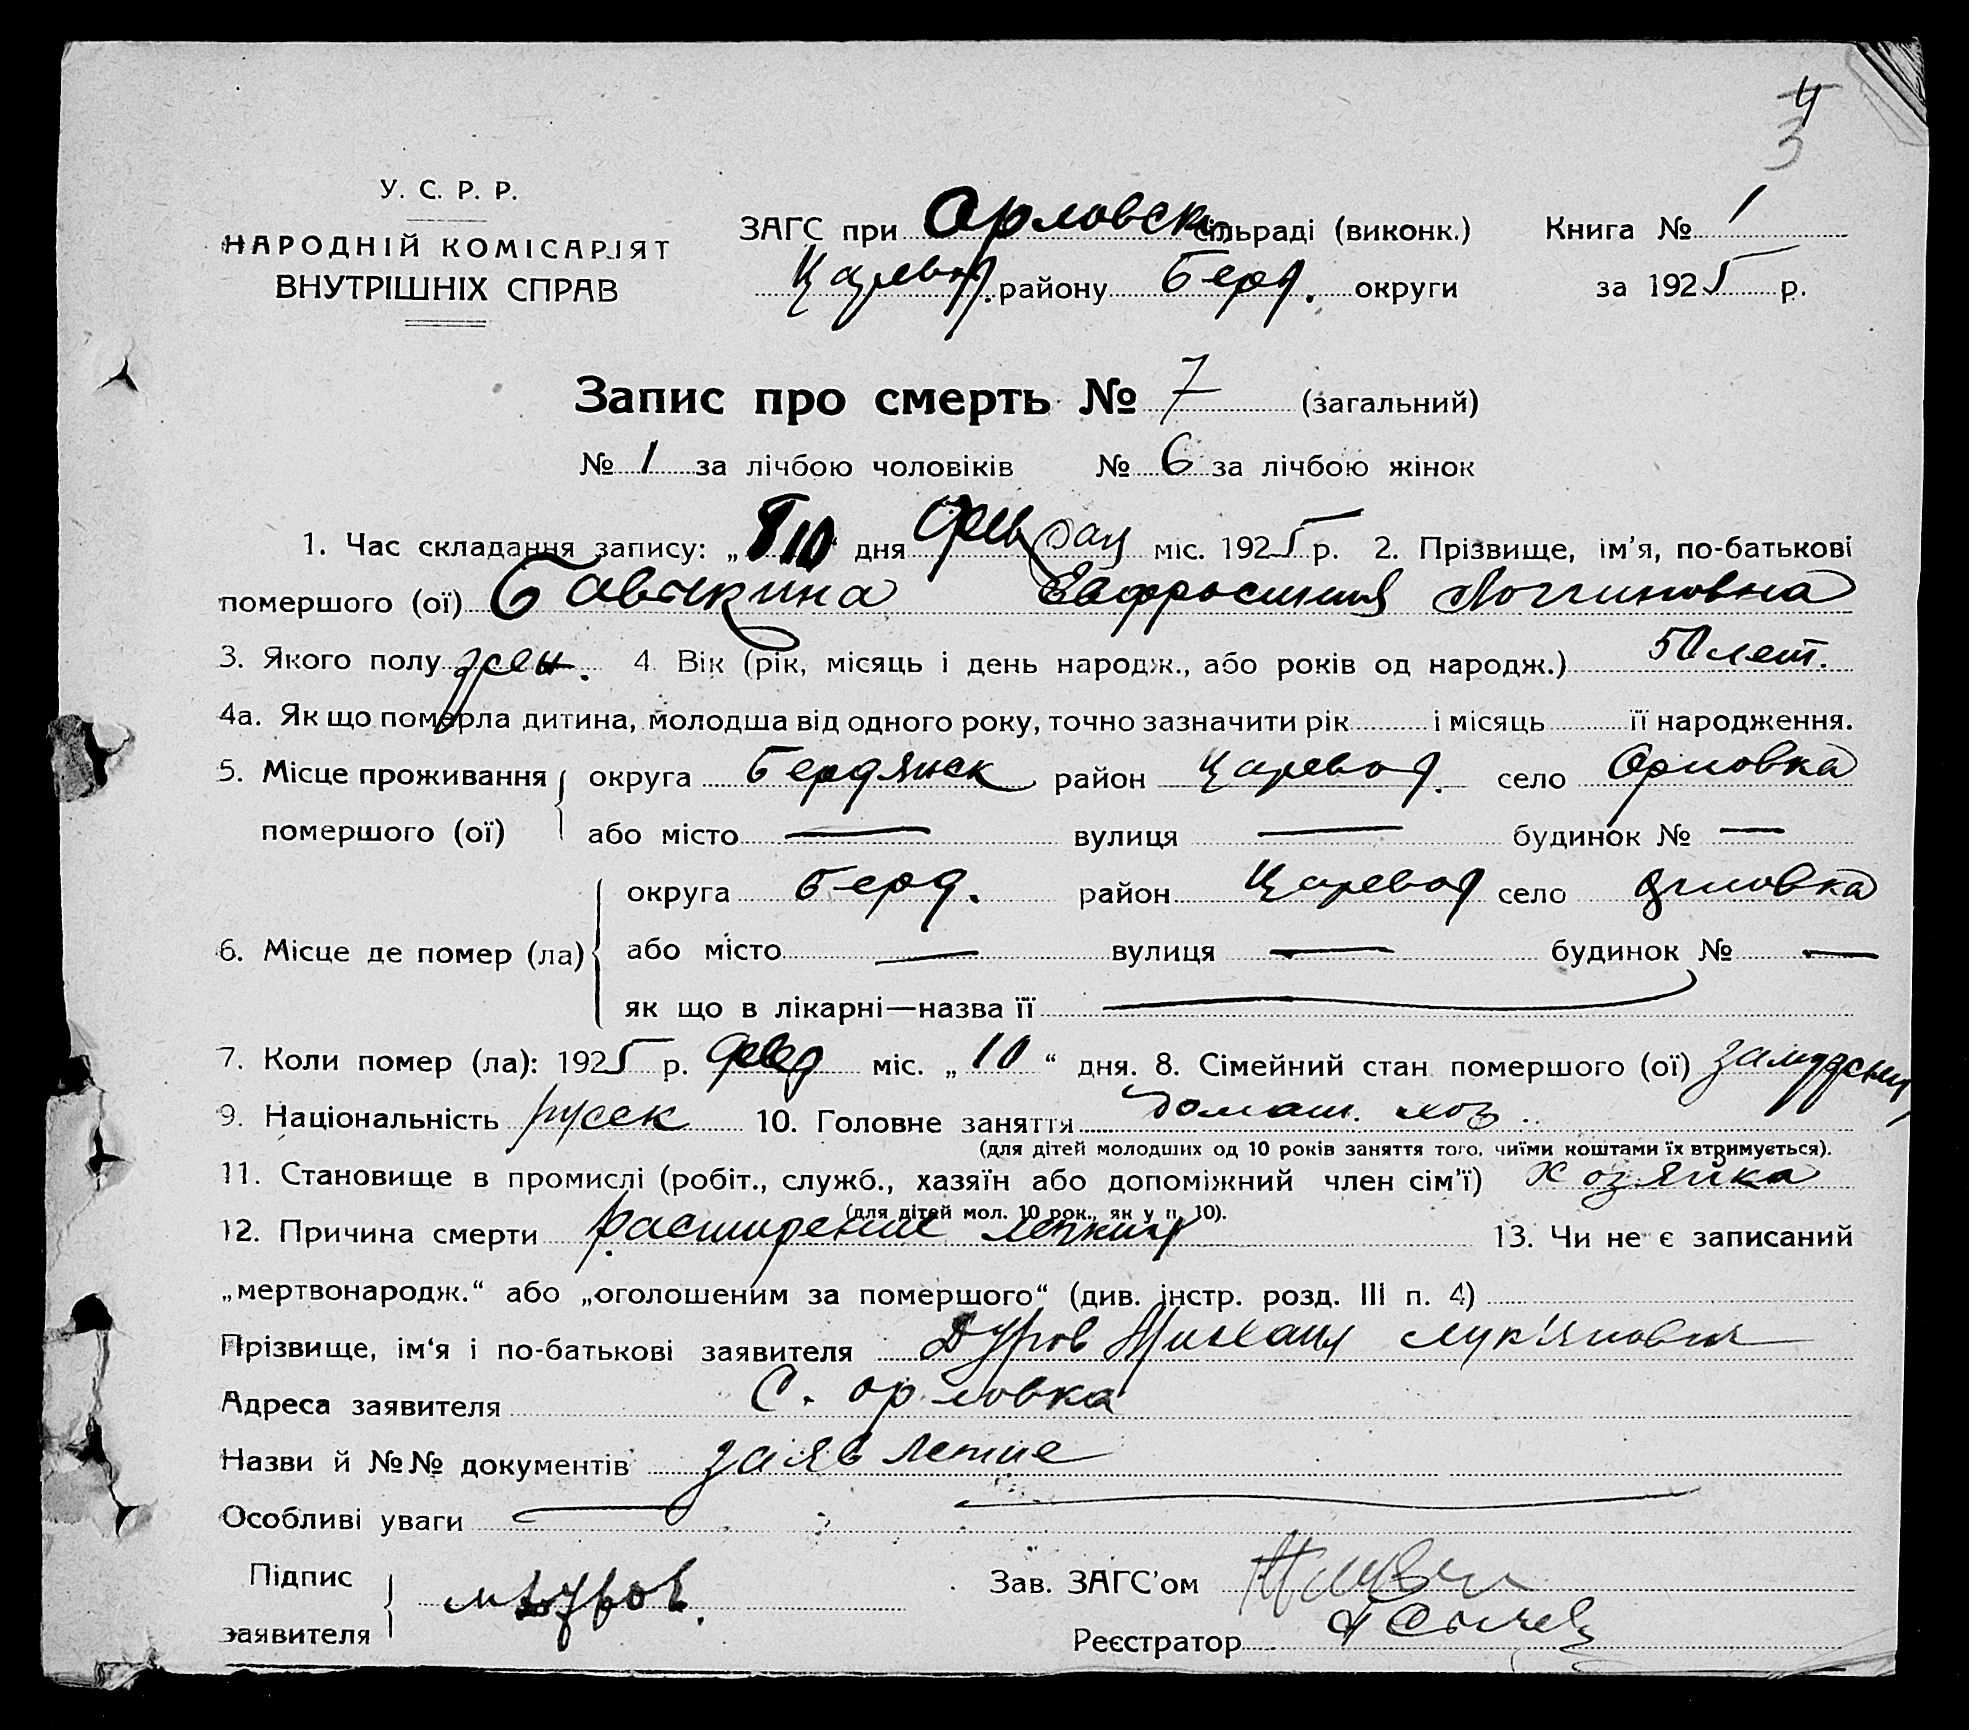 4
3
У. С. Р. Р.
НАРОДНІЙ КОМІСАРІЯТ
ВНУТРІШНІХ СПРАВ
ЗАГС при Орловск. сільраді (виконк.) Книга № 1
Царевод. району Берд. округи за 1925 р.
Запис про смерть № 7 (загальний)
№ 1 за лічбою чоловіків № 6 за лічбою жінок
1. Час складання запису: „10“ дня міс. 1925 р. 2. Прізвище, ім’я, по-батькові
помершого (ої) Бавыкина Евфросиния Логиновна
3. Якого полу жен. 4. Вік (рік, місяць і день народж., або років од народж.) 50 лет.
4а. Як що померла дитина, молодша від одного року, точно зазначити рік і місяць її народження.
5. Місце проживання округа Бердянск район Царевод. село Орловка
помершого (ої) або місто — вулиця — будинок № —
округа Берд. район Царевод село Орловка
6. Місце де помер (ла) або місто — вулиця — будинок № —
як що в лікарні—назва її —
7. Коли помер (ла): 1925 р. февр міс. „10“ дня. 8. Сімейний стан помершого (ої) замужем
9. Національність русск 10. Головне заняття домаш. хоз.
(для дітей молодших од 10 років заняття того, чиїми коштами їх втримується).
11. Становище в промислі (робіт., служб., хазяїн або допоміжний член сім’ї) хозяйка
(для дітей мол. 10 рок., як у п. 10).
12. Причина смерти расширение легких 13. Чи не є записаний
„мертвонародж.“ або „оголошеним за помершого“ (див. інстр. розд. III п. 4)
Прізвище, ім‘я і по-батькові заявителя Дуров Михаил Лук'янович
Адреса заявителя С. Орловка
Назви й №№ документів заявление
Особливі уваги —
Підпис
заявителя М Дуров.
Зав. ЗАГС’ом
Реєстратор